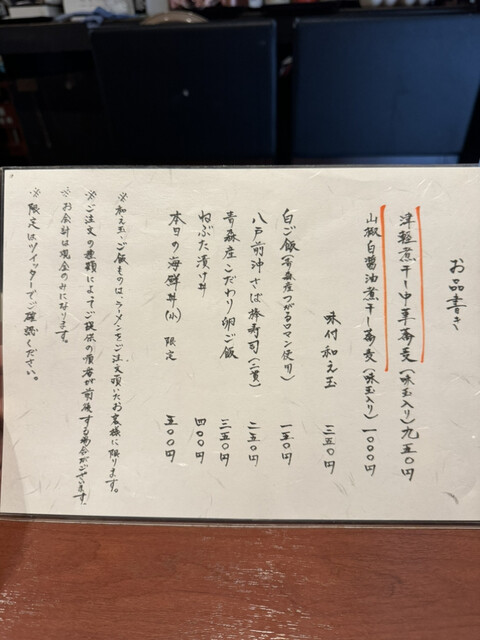 お品書き
津軽煮干し中華蕎麦(味玉入り)九五〇円
山椒白醤油煮干し蕎麦(味玉入り)一〇〇〇円
味付和え玉 三五〇円
白ご飯(青森産つがるロマン使用) 一五〇円
八戸前沖さば棒寿司(二貫) 二五〇円
青森産こだわり卵ご飯 三五〇円
ねぶた漬け丼 四〇〇円
本日の海鮮丼(小) 限定 五〇〇円
※和え玉、ご飯ものは、ラーメンをご注文頂いたお客様に限ります。
※ご注文の種類によってご提供の順番が前後する場合がございます。
※お会計は現金のみになります。
※限定はツイッターでご確認ください。